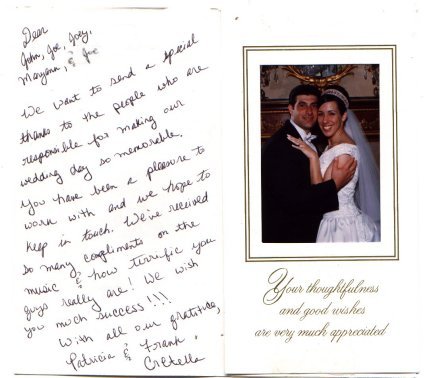 Dear
John, Joe, Joey,
Maryann, & Joe
We want to send a special
thanks to the people who are
responsible for making our
wedding day so memorable.
You have been a pleasure to
work with and we hope to
keep in touch. We've received
so many compliments on the
music & how terrific you
guys really are! We wish
you much success!!!
With all our gratitude,
Patricia & Frank
Your thoughtfulness
and good wishes
are very much appreciated